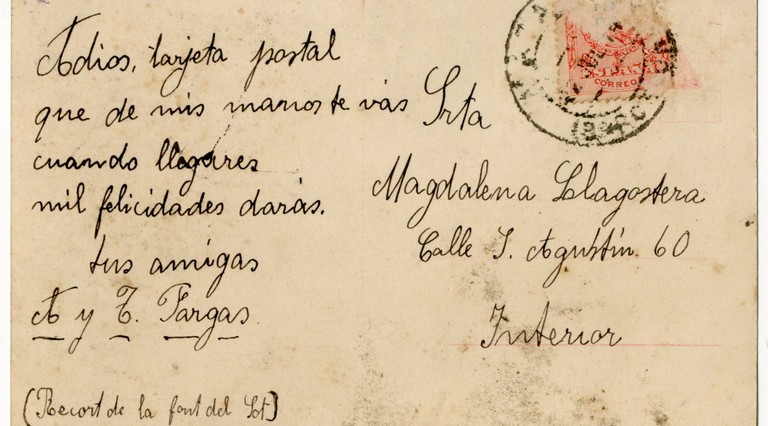 Adios, tarjeta postal
que de mis manos te vas
cuando llegares
mil felicidades darás.
tus amigas
A y T. Fargas
(Recort de la font del Sot)
CORREO
Srta
Magdalena Llagostera
Calle S. Agustín 60
Interior